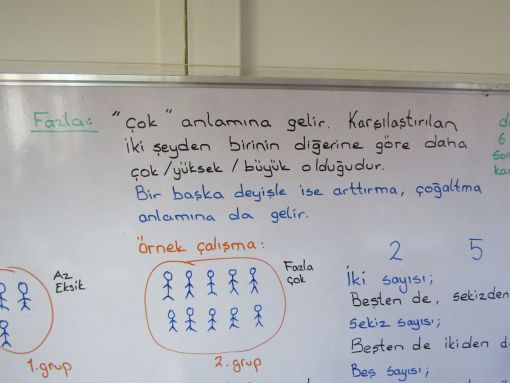 Fazla: "çok" anlamına gelir. Karşılaştırılan
iki şeyden birinin diğerine göre daha
çok/yüksek/büyük olduğudur.
Bir başka deyişle ise arttırma, çoğaltma
anlamına da gelir.
Örnek çalışma:
Az
Eksik
1.grup
Fazla
çok
2.grup
2 5
İki sayısı;
Beşten de, sekizden
Sekiz sayısı;
Beşten de ikiden d
Beş sayısı;
6